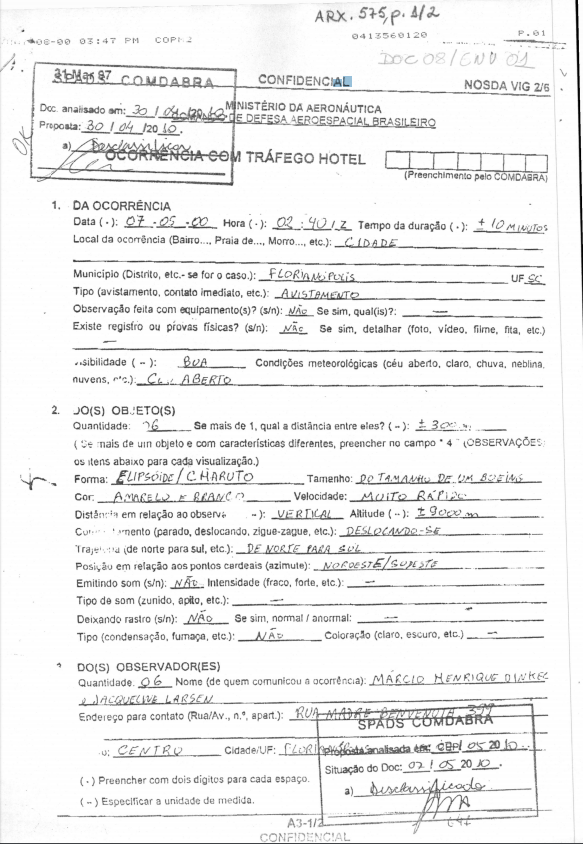 ARX. 575, p. 1/2
08-00 03:47 PM COPM2 0413560120 P.01
DOC 08/ENV 01
31 Mar 97
SPADS COMDABRA
CONFIDENCIAL
NOSDA VIG 2/6
Doc. analisado em: 30 / 04 /2010
MINISTÉRIO DA AERONÁUTICA
Proposta: 30 / 04 /2010.
DE DEFESA AEROESPACIAL BRASILEIRO
OK
a) Desclassificar
OCORRÊNCIA COM TRÁFEGO HOTEL
(Preenchimento pelo COMDABRA)
1. DA OCORRÊNCIA
Data (·): 07-05-00 Hora (·): 02:40/Z Tempo da duração (·): ± 10 MINUTOS
Local da ocorrência (Bairro..., Praia de..., Morro..., etc.): CIDADE
Município (Distrito, etc.- se for o caso.): FLORIANÓPOLIS UF SC
Tipo (avistamento, contato imediato, etc.): AVISTAMENTO
Observação feita com equipamento(s)? (s/n): NÃO Se sim, qual(is)?: —
Existe registro ou provas físicas? (s/n): NÃO Se sim, detalhar (foto, vídeo, filme, fita, etc.)
—
visibilidade (--): BOA Condições meteorológicas (céu aberto, claro, chuva, neblina,
nuvens, etc.): ABERTO
2. DO(S) OBJETO(S)
Quantidade: 06 Se mais de 1, qual a distância entre eles? (--): ± 300 m
(Se mais de um objeto e com características diferentes, preencher no campo "4" (OBSERVAÇÕES)
os itens abaixo para cada visualização.)
Forma: ELIPSÓIDE/CHARUTO Tamanho: DO TAMANHO DE UM BOEING
Cor: AMARELO E BRANCO Velocidade: MUITO RÁPIDO
Distância em relação ao observa --): VERTICAL Altitude (--): ± 9000 m
tamento (parado, deslocando, zigue-zague, etc.): DESLOCANDO-SE
Trajetória (de norte para sul, etc.): DE NORTE PARA SUL
Posição em relação aos pontos cardeais (azimute): NOROESTE/SUDESTE
Emitindo som (s/n): NÃO Intensidade (fraco, forte, etc.): —
Tipo de som (zunido, apito, etc.): —
Deixando rastro (s/n): NÃO Se sim, normal / anormal: —
Tipo (condensação, fumaça, etc.): NÃO Coloração (claro, escuro, etc.) —
DO(S) OBSERVADOR(ES)
Quantidade: 06 Nome (de quem comunicou a ocorrência): MÁRCIO HENRIQUE
E JACQUELINE LARSEN
Endereço para contato (Rua/Av., n.º, apart.): RUA MADRE BENVENUTA
SPADS COMDABRA
CENTRO Cidade/UF:
Proposta analisada em: / 05 /2010.
Situação do Doc: 02 / 05 2010
(·) Preencher com dois dígitos para cada espaço.
a) Desclassificado
(--) Especificar a unidade de medida.
A3-1/2
CONFIDENCIAL